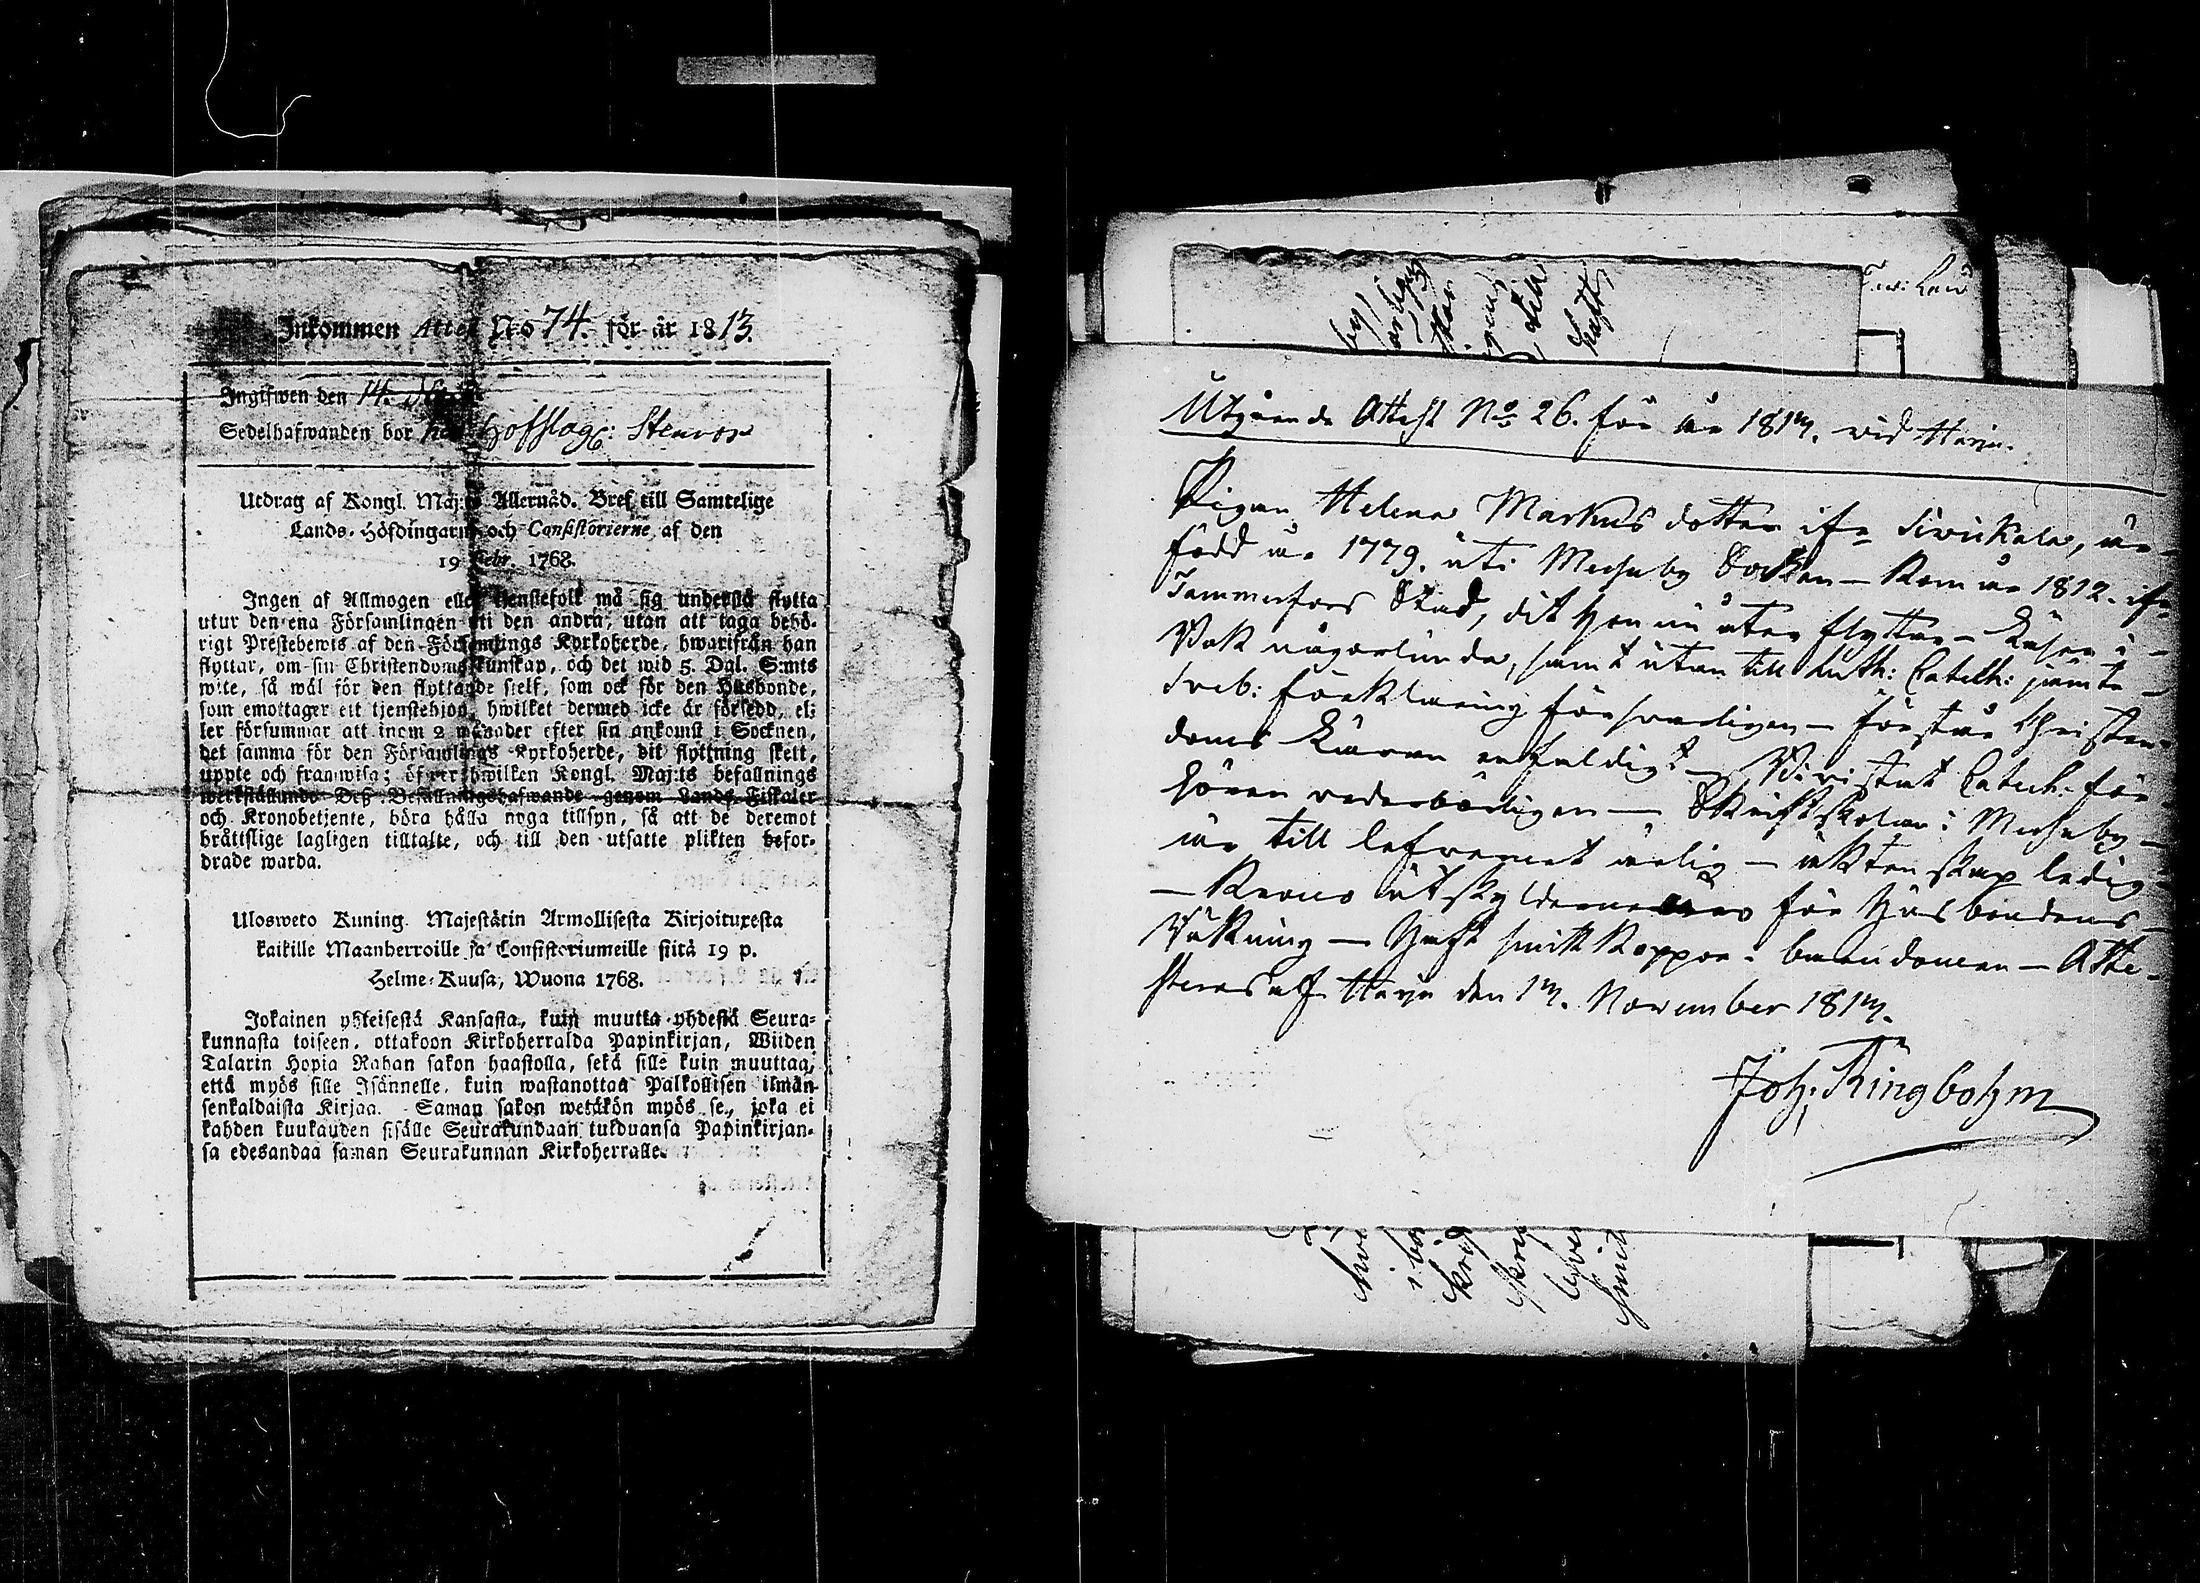 Inkommen Attest No 74. för år 1813.
Ingifwen den 14.
Sedelhafwanden bor hos Hofslag: Stenroos
Utdrag af Kongl. Maj:ts Allernåd. Bref till Samtelige
Lands-Höfdingarne och Consistorierne af den
19 Febr. 1768.
Ingen af Allmogen eller tjenstefolk må sig understå flytta
utur den ena Församlingen uti den andra, utan att taga behö-
rigt Prestebewis af den Församlings Kyrkoherde, hwarifrån han
flyttar, om sin Christendoms kunskap, och det wid 5. Dal. S:mts
wite, så wäl för den flyttande sielf, som ock för den Husbonde,
som emottager ett tjenstehjon, hwilket dermed icke är försedd, el-
ler försummar att inom 2 månader efter sin ankomst i Socknen,
det samma för den Församlings Kyrkoherde, dit flyttning skett,
uppte och framwisa; öfwer hwilken Kongl. Maj:ts befallnings
werkställande Deß Befallningshafwande genom Lands-Fiskaler
och Kronobetjente, böra hålla noga tillsyn, så att de deremot
bråttslige lagligen tilltalte, och till den utsatte plikten befor-
drade warda.
Ulosweto Kuning. Majestätin Armollisesta Kirjoituxesta
kaikille Maanherroille ja Consistoriumeille siitä 19 p.
Helme-Kuusa, Wuona 1768.
Jokainen yhteisestä Kansasta, kuin muutta yhdestä Seura-
kunnasta toiseen, ottakoon Kirkoherralda Papinkirjan, Wiiden
Talarin Hopia Rahan sakon haastolla, sekä sille kuin muuttaa,
että myös sille Isännelle, kuin wastanottaa Palkollisen ilmän
senkaldaista Kirjaa. Saman sakon wetäkön myös se, joka ei
kahden kuukauden sisälle Seurakundaan tulduansa Papinkirjan-
sa edesandaa saman Seurakunnan Kirkoherralle.
Utgående Attest No 26. för år 1813. wid Harju.
Pigan Helena Markus dotter ifr Siwickala, är
född år 1779. uti Messuby Sockn – Kom år 1812. ifr
Tammerfors Stad, dit hon nu åter flyttar – Läser i
Bok någorlunda, samt utan till Luth: Catech: jämte
Sveb: förklaring förswarligen – förstår Christen-
doms Läran enfaldigt – Bivistat Catech. för-
hören wederbörligen – Skriftskolan i Messuby –
är till lefwernet ärlig – äktenskap ledig
– Krono utskylderne för Husbondens
räkning – Haft smittkoppor i barndomen – Atte-
steras af Harju den 13. November 1813.
Joh: Ringbohm